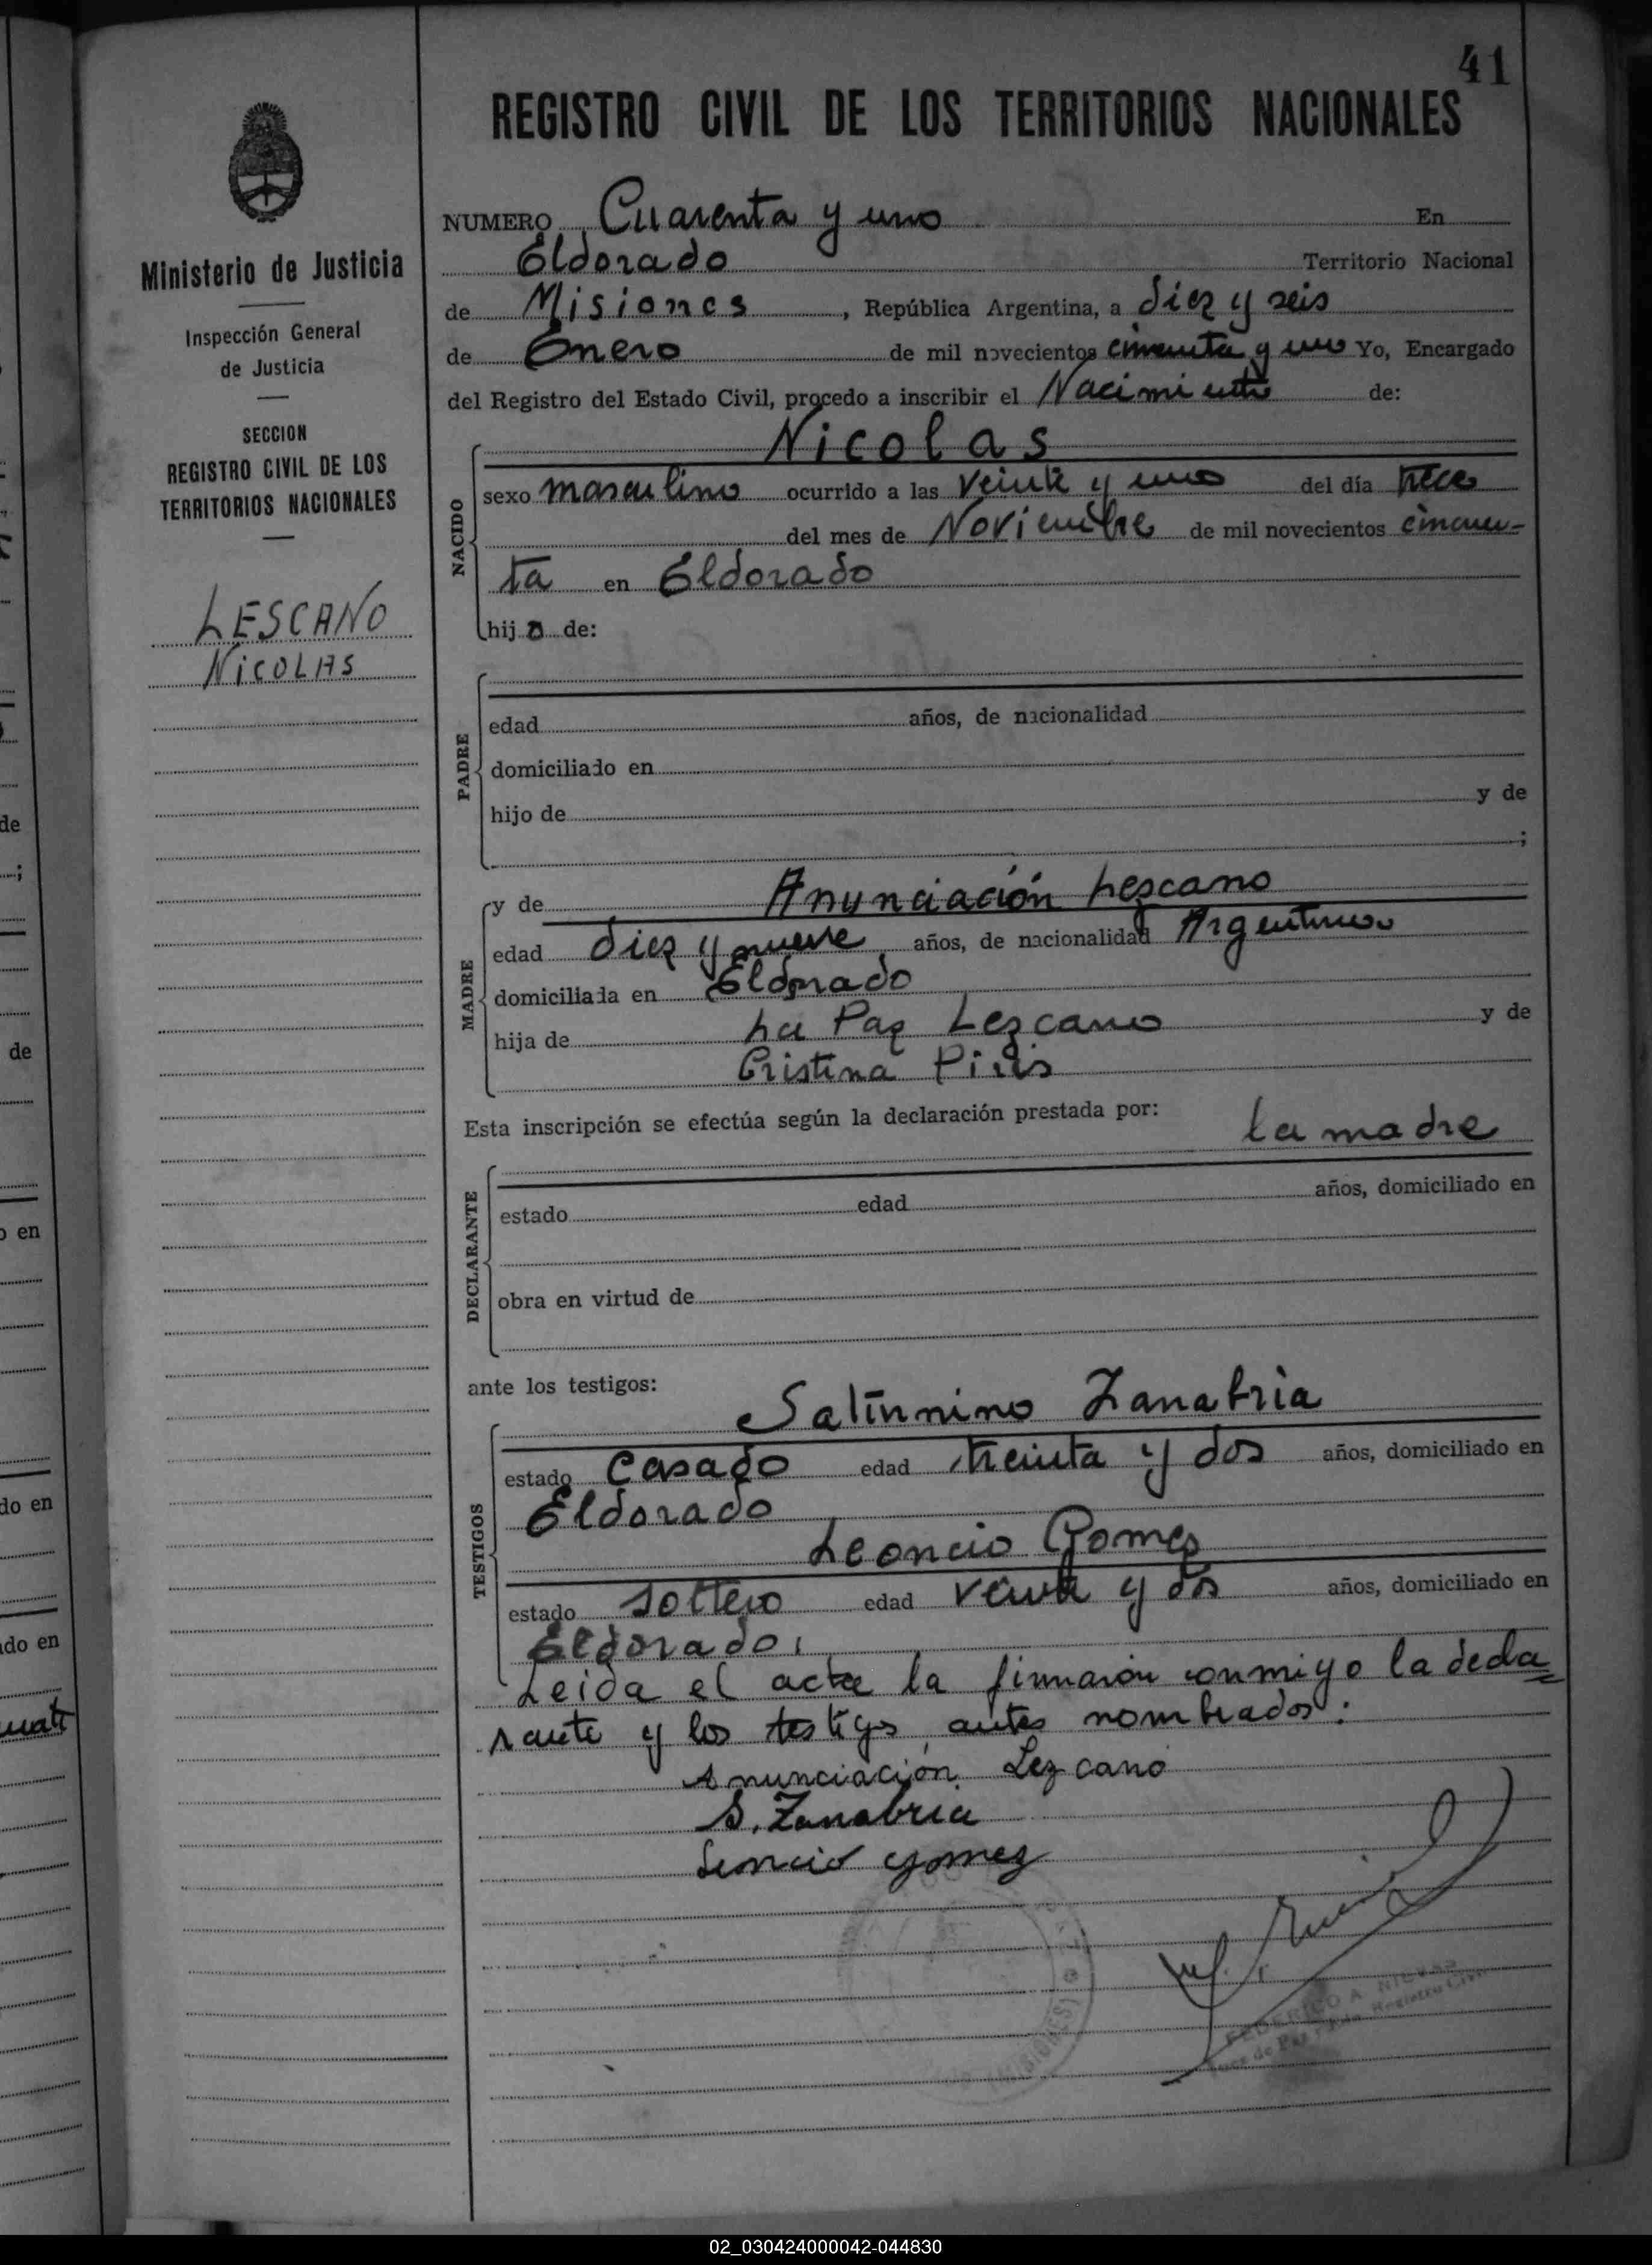 41
REGISTRO CIVIL DE LOS TERRITORIOS NACIONALES
Ministerio de Justicia
Inspección General
de Justicia
SECCION
REGISTRO CIVIL DE LOS
TERRITORIOS NACIONALES
LESCANO
NICOLAS
NUMERO Cuarenta y uno En
Eldorado Territorio Nacional
de Misiones, República Argentina, a diez y seis
de Enero de mil novecientos cincuenta y uno Yo, Encargado
del Registro del Estado Civil, procedo a inscribir el Nacimiento de:
Nicolas
NACIDO
sexo masculino ocurrido a las veinte y uno del día trece
del mes de Noviembre de mil novecientos cincuen-
ta en Eldorado
hijo de:
PADRE
edad años, de nacionalidad
domiciliado en
hijo de y de
;
MADRE
y de Anunciación Lezcano
edad diez y nueve años, de nacionalidad Argentina
domiciliada en Eldorado
hija de La Paz Lezcano y de
Cristina Piris
Esta inscripción se efectúa según la declaración prestada por: la madre
DECLARANTE
estado edad años, domiciliado en
obra en virtud de
ante los testigos:
TESTIGOS
Saturnino Zanabria
estado Casado edad treinta y dos años, domiciliado en
Eldorado
Leoncio Gomez
estado soltero edad veinte y dos años, domiciliado en
Eldorado.
Leida el acta la firmaron conmigo la decla
rante y los testigos antes nombrados:
Anunciación Lezcano
S. Zanabria
Leoncio gomez
MISIONES
FEDERICO A.
Juez de Paz Registro Civil
de
de
en
do en
do en
02_030424000042-044830